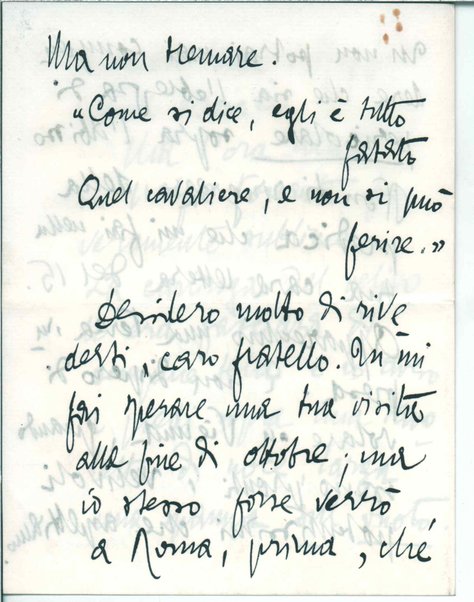 Ma non tremare.
«Come si dice, egli è tutto
fatato
Quel cavaliere, e non si può
ferire.»
Desidero molto di rive
derti, caro fratello. Tu mi
fai sperare una tua visita
alla fine di ottobre; ma
io stesso forse verrò
a Roma, prima, ché